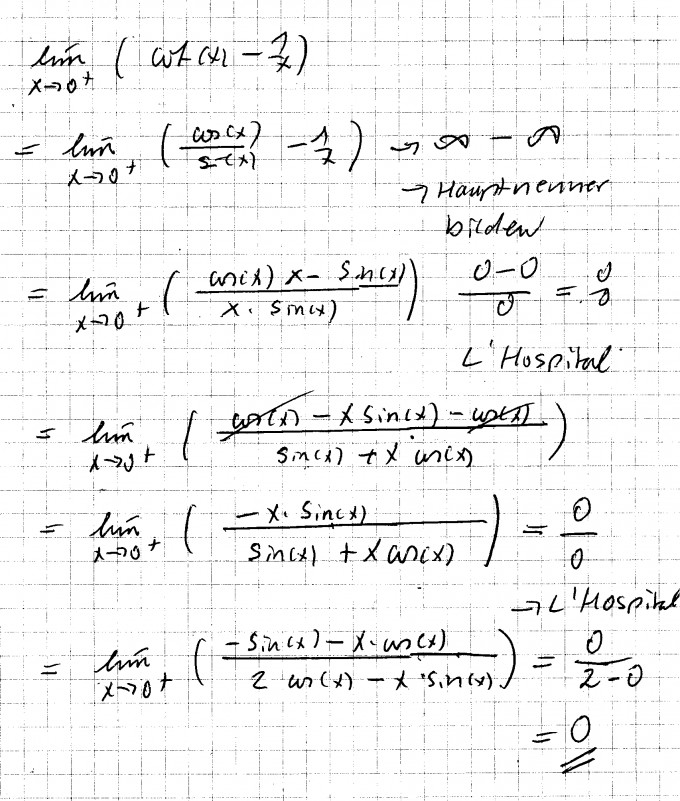 lim x→0+ ( cot(x) - 1/x )
= lim x→0+ ( cos(x)/sin(x) - 1/x ) → ∞ - ∞
→ Hauptnenner
bilden
= lim x→0+ ( (cos(x) x - sin(x)) / (x · sin(x)) ) (0-0)/0 = 0/0
L'Hospital
= lim x→0+ ( (cos(x) - x sin(x) - cos(x)) / (sin(x) + x cos(x)) )
= lim x→0+ ( (-x · sin(x)) / (sin(x) + x cos(x)) ) = 0/0
→ L'Hospital
= lim x→0+ ( (-sin(x) - x · cos(x)) / (2 cos(x) - x · sin(x)) ) = 0/(2-0)
= 0